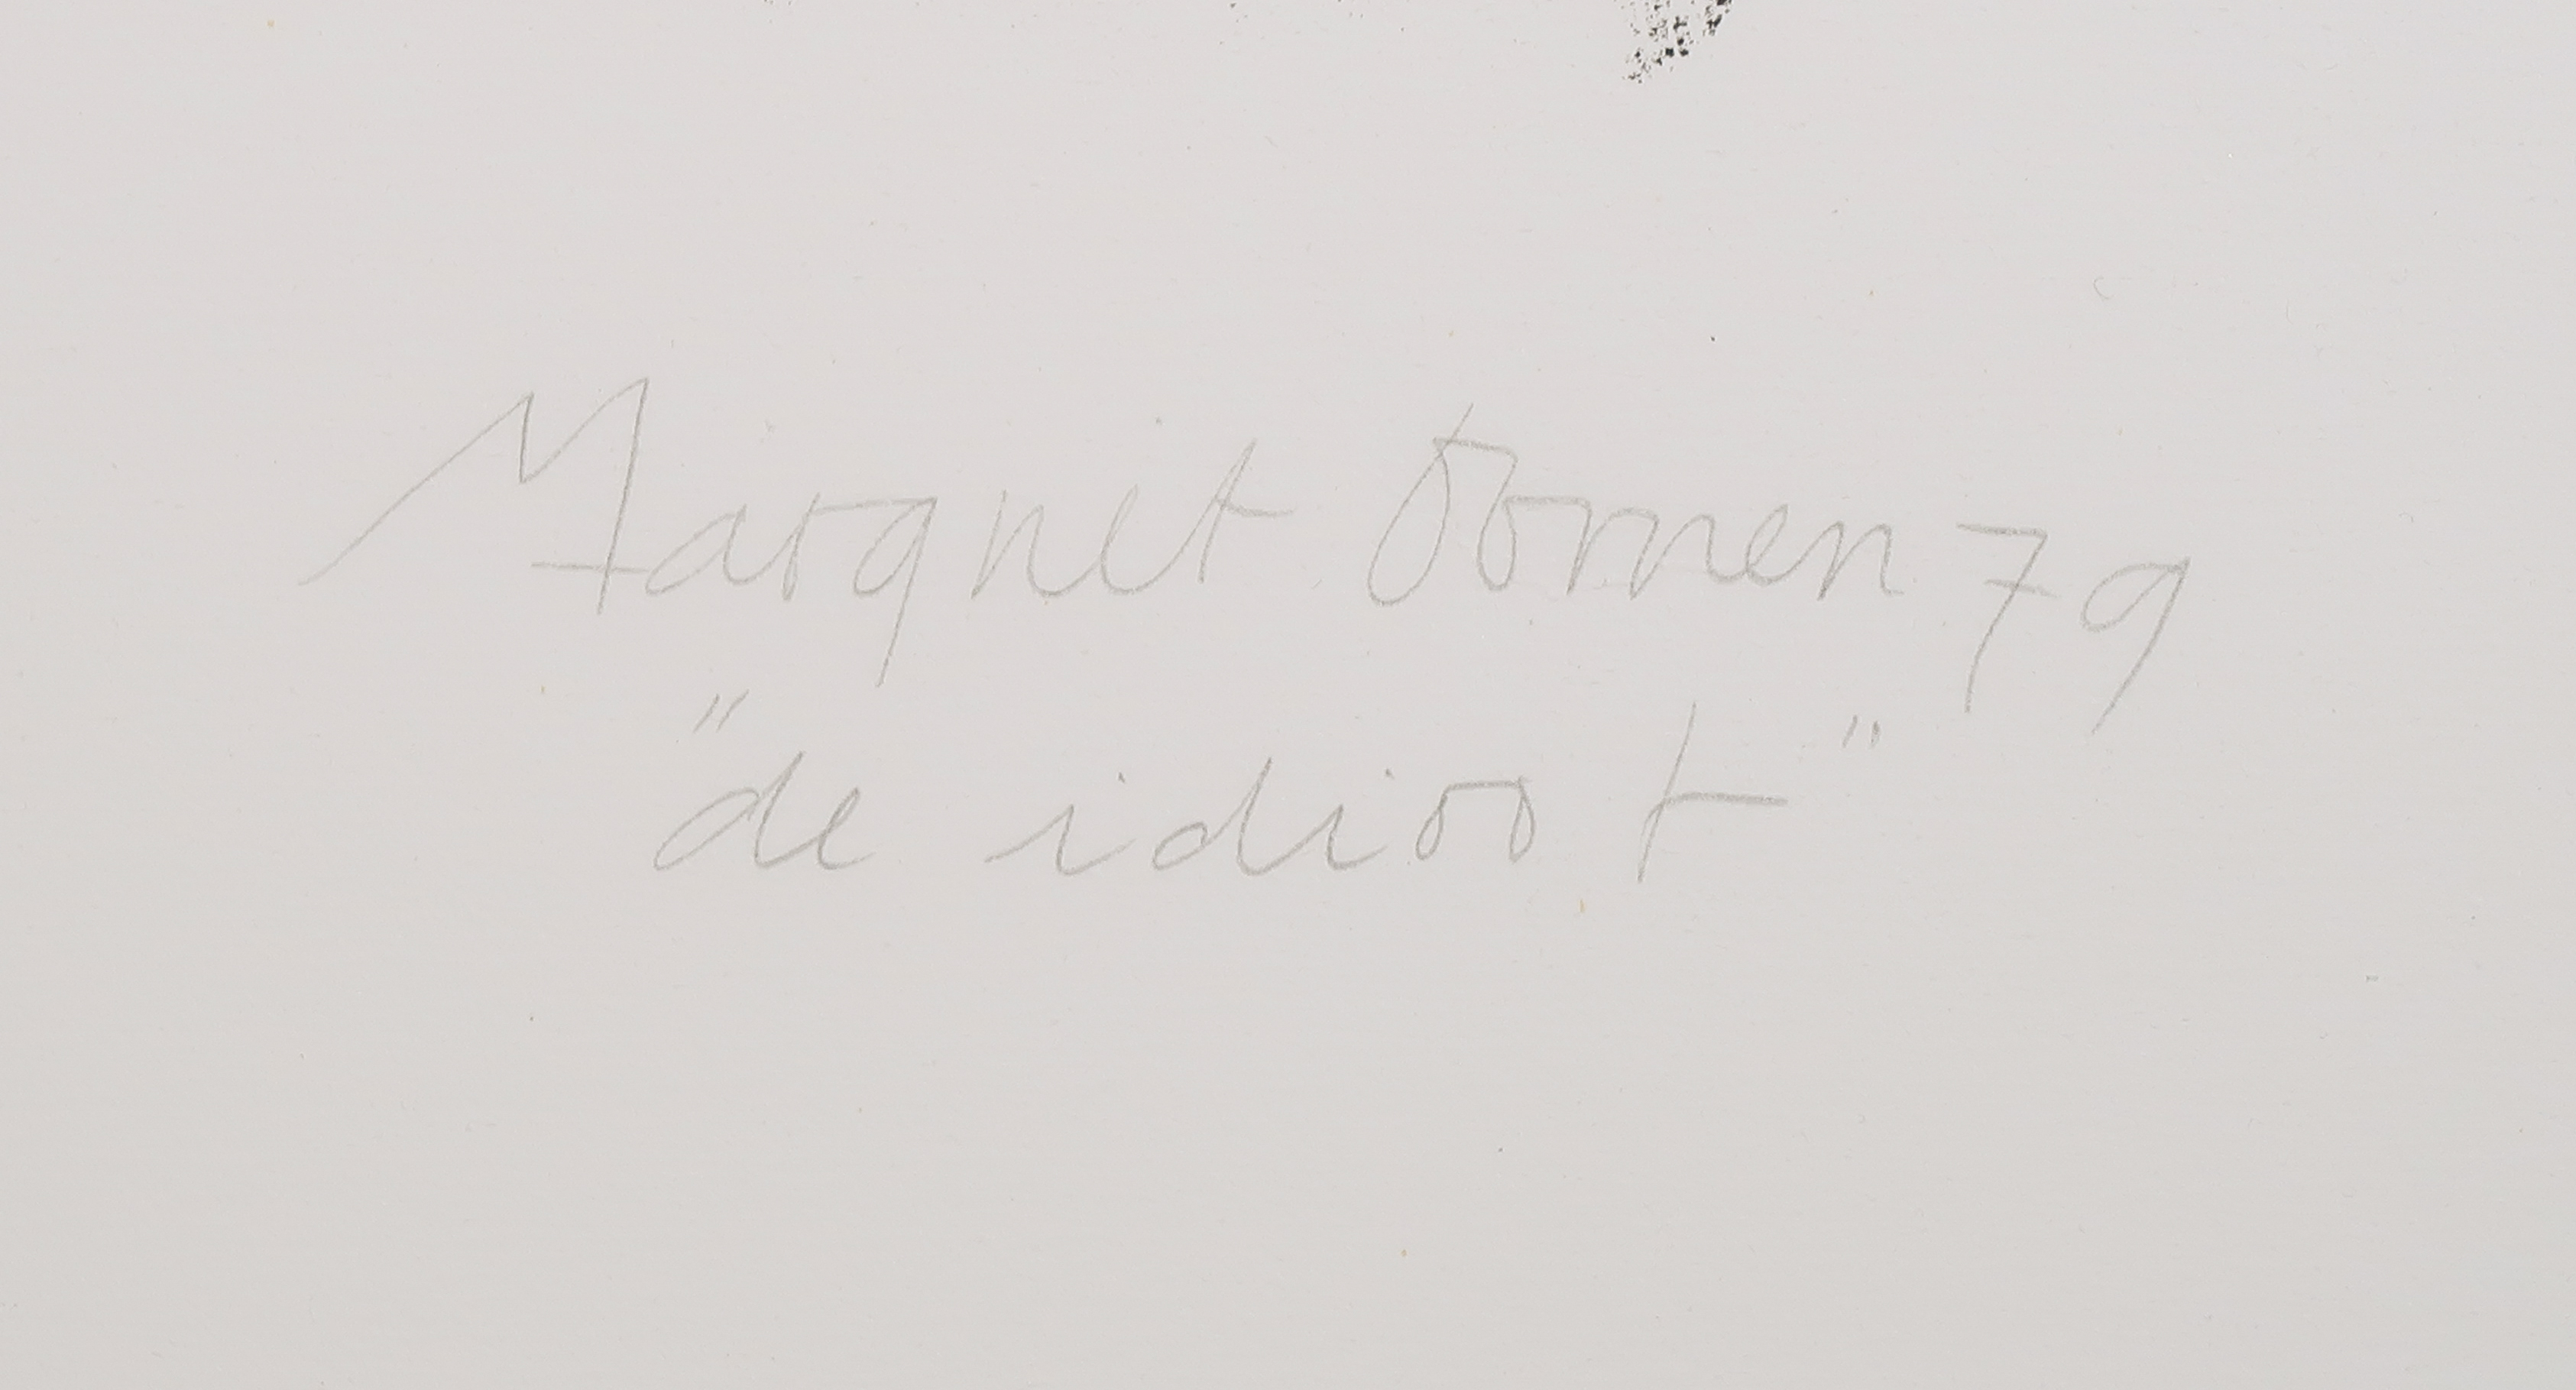 Margret Oomen 79
"de idioot"